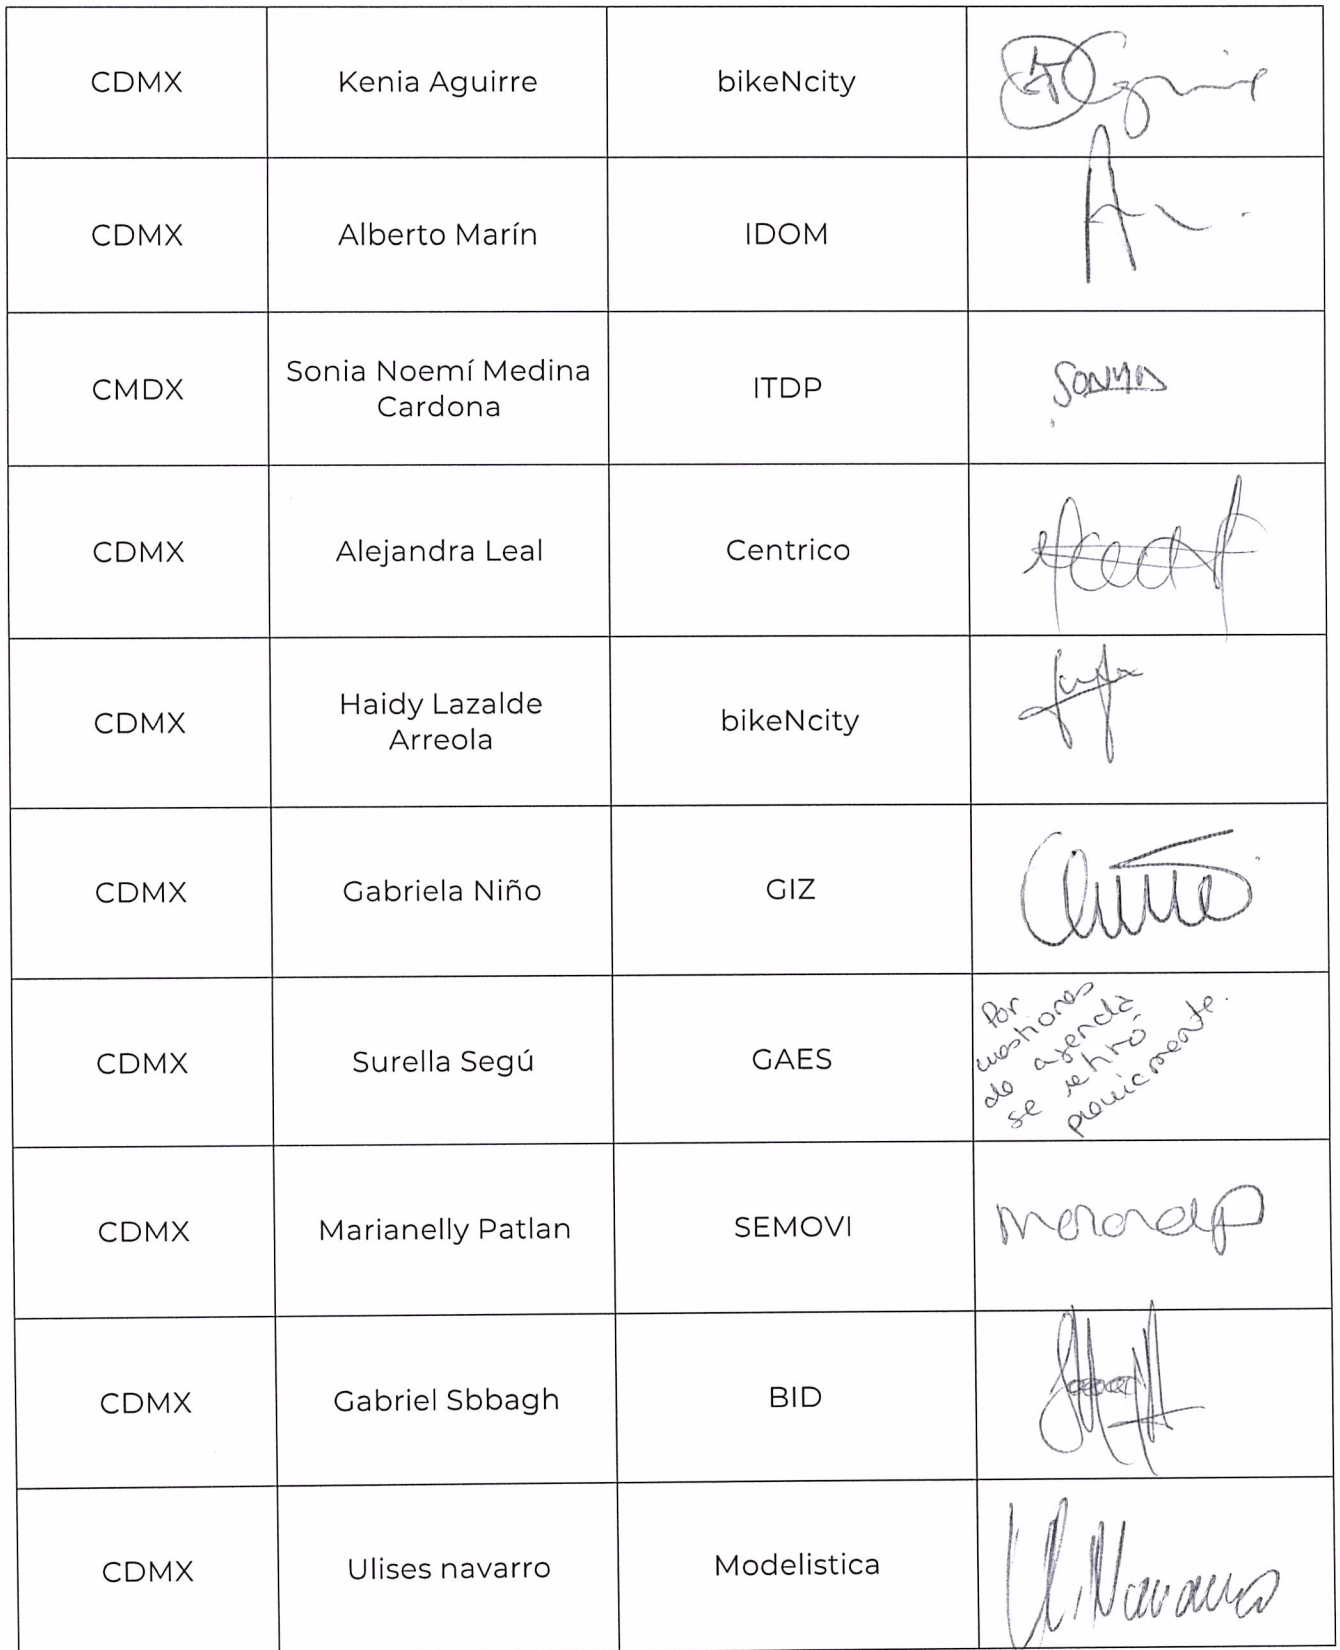 CDMX Kenia Aguirre bikeNcity
CDMX Alberto Marín IDOM
CMDX Sonia Noemí Medina Cardona ITDP SONYA
CDMX Alejandra Leal Centrico
CDMX Haidy Lazalde Arreola bikeNcity
CDMX Gabriela Niño GIZ
CDMX Surella Segú GAES
Por
cuestiones
de agenda
se retiró
previamente.
CDMX Marianelly Patlan SEMOVI
CDMX Gabriel Sbbagh BID
CDMX Ulises navarro Modelistica U. Navarro